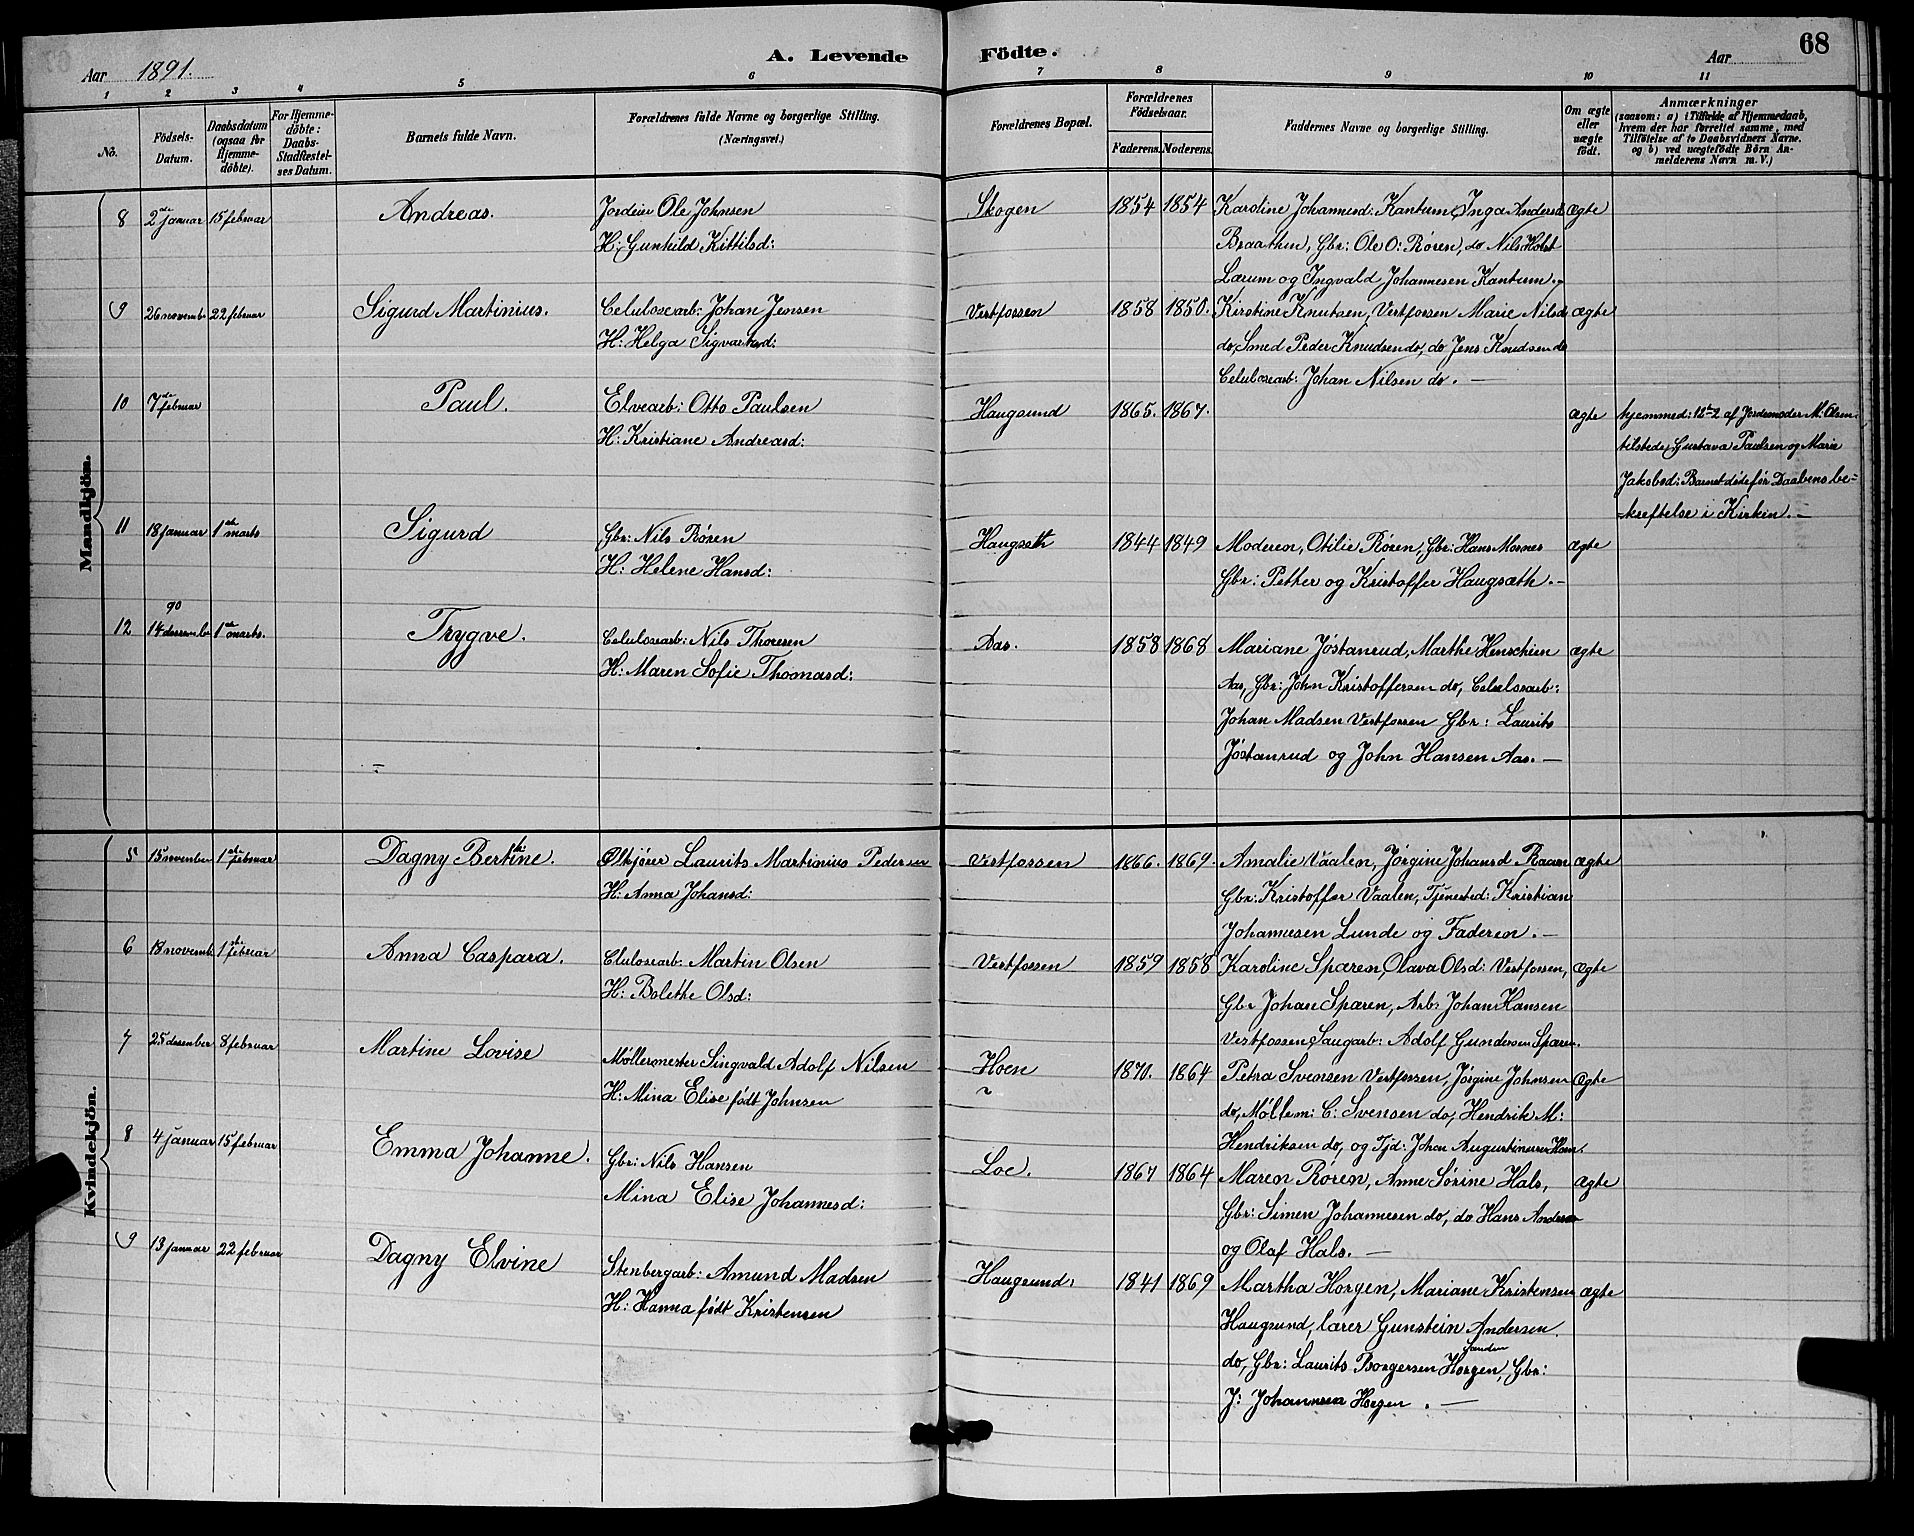 A. Levende Födte.
68
Aar 1891.
Aar
1 2 3 4 5 6 7 8 9 10 11
No.
Födsels-Datum.
Daabsdatum (ogsaa for Hjemme-döbte).
For Hjemme-döbte: Daabs-Stadfæstel-ses Datum.
Barnets fulde Navn.
Forældrenes fulde Navne og borgerlige Stilling. (Næringsvei.)
Forældrenes Bopæl.
Forældrenes Födselsaar.
Faderens. Moderens.
Faddernes Navne og borgerlige Stilling.
Om ægte eller uægte födt.
Anmærkninger
(saasom: a) i Tilfælde af Hjemmedaab, hvem der har forrettet samme, med Tilföielse af to Daabsvidners Navne, og b) ved uægtefödte Börn Anmelderens Navn m. V.)
Mandkjön.
8 2de januar 15 februar Andreas. Jordeier Ole Johnsen Skogen 1854 1854 Karoline Johannesd: Kantum, Inga Andersd ægte
H: Gunhild Kittilsd: Braathen, Gbr: Ole O: Røren, do Nils Holst
Lærum og Ingvald Johannesen Kantum.
9 26 novemb 22 februar Sigurd Martinius. Celulosearb: Johan Jensen Vestfossen 1858 1850. Kirstine Knutsen, Vestfossen Marie Nilsd ægte
H: Helga Sigvartsd: do, Smed Peder Knudsen do, do Jens Knudsen do
Celulosearb: Johan Nilsen do. —
10 7de februar Paul. Elvearb: Otto Paulsen Haugsund 1865. 1867. ægte hjemmed: 12-2 af Jordemoder M. Olsen
H: Kristiane Andreasd: tilstede, Gustava Paulsen og Marie
Jakobsd: Barnet døde før Daabens be-
kræftelse i Kirken. —
11 18 januar 1ste marts Sigurd Gbr: Nils Røren Haugsæth 1844 1849 Moderen, Otilie Røren, Gbr: Hans Mornes ægte
H: Helene Hansd: Gbr: Petter og Kristoffer Haugsæth. —
90
12 14 desemb 1ste marts. Trygve. Celulosearb: Nils Thoresen Aas. 1858 1868 Mariane Jøstanrud, Marthe Henschien ægte
H: Maren Sofie Thomasd: Aas, Gbr: John Kristoffersen do, Celulosearb:
Johan Madsen Vestfossen Gbr: Laurits
Jøstanrud og John Hansen Aas. —
Kvindekjön.
5 15 november 1ste februar Dagny Bertine. Ølkjører Laurits Martinius Pedersen Vestfossen 1866. 1869. Amalie Vaalen, Jørgine Johansd Raaen ægte
H: Anna Johansd: Gbr: Kristoffer Vaalen, Tjenested: Kristian
Johannesen Lunde og Faderen. —
6 18 novemb 1ste februar Anna Caspara. Clulosearb: Martin Olsen Vestfossen 1859 1858 Karoline Sparen, Olava Olsd: Vestfossen, ægte
H: Bolethe Olsd: Gbr Johan Sparen, Arb: Johan Hansen
Vestfossen, Saugarb: Adolf Gundersen Sparen.
7 25 desember 8 februar Martine Lovise Møllermester Singvald Adolf Nilsen Hoen 1870. 1864 Petra Svensen Vestfossen, Jørgine Johnsen Ægte
H: Mina Elise født Johnsen do, Møllem: C: Svensen do, Hendrik M:
Hendriksen do, og Tjd: Johan Augustinusen Hoen.
8 4 januar 15 februar Emma Johanne. Gbr: Nils Hansen Loe. 1867 1864 Maren Røren, Anne Sørine Hals, ægte
Mina Elise Johannesd: Gbr: Simen Johannesen do, do Hans Andersen
og Olaf Hals. —
9 13 januar 22 februar Dagny Elvine Stenbergarb: Amund Madsen Haugsund, 1841 1869 Martha Horgen, Mariane Kristensen ægte
H: Hanna født Kristensen Haugsund, lærer Gunstein Andersen
do, Gbr: Laurits Borgersen Horgen, Gbr:
J: Johannesen Horgen. —